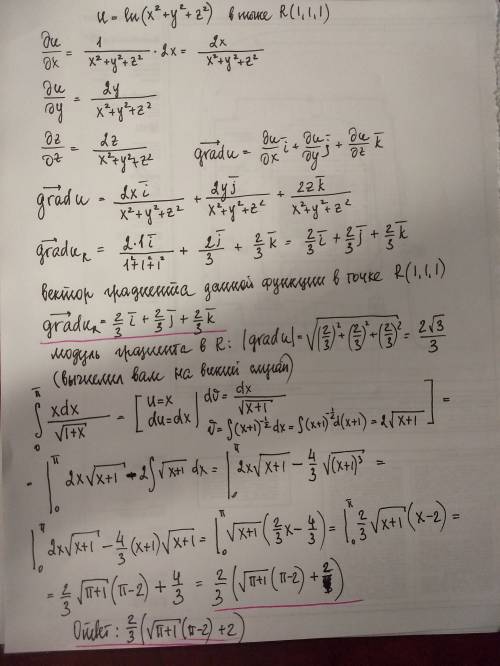 u = ln(x²+y²+z²) в точке R(1,1,1)
∂u/∂x = 1/(x²+y²+z²) · 2x = 2x/(x²+y²+z²)
∂u/∂y = 2y/(x²+y²+z²)
∂z/∂z = 2z/(x²+y²+z²) grad u = ∂u/∂x i̅ + ∂u/∂y j̅ + ∂u/∂z k̅
grad u = 2x i̅/(x²+y²+z²) + 2y j̅/(x²+y²+z²) + 2z k̅/(x²+y²+z²)
grad u_R = 2·1 i̅/(1²+1²+1²) + 2 j̅/3 + 2/3 k̅ = 2/3 i̅ + 2/3 j̅ + 2/3 k̅
вектор градиента данной функции в точке R(1,1,1)
grad u_R = 2/3 i̅ + 2/3 j̅ + 2/3 k̅
модуль градиента в R: |grad u| = √((2/3)²+(2/3)²+(2/3)²) = 2√3/3
(вычислил вам на всякий случай)
∫₀^π xdx/√(1+x) = [u=x du=dx | dϑ = dx/√(x+1) ϑ = ∫(x+1)^(-1/2) dx = ∫(x+1)^(-1/2) d(x+1) = 2√(x+1)] =
= |₀^π 2x√(x+1) - 2∫√(x+1) dx = |₀^π 2x√(x+1) - 4/3 √((x+1)³) =
|₀^π 2x√(x+1) - 4/3 (x+1)√(x+1) = |₀^π √(x+1) (2/3 x - 4/3) = |₀^π 2/3 √(x+1) (x-2) =
= 2/3 √(π+1) (π-2) + 4/3 = 2/3 (√(π+1) (π-2) + 2)
Ответ: 2/3 (√(π+1) (π-2) + 2)